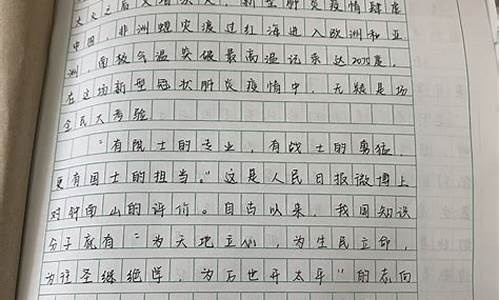 火灾之后又增添天，新型肺炎疫情肆虐
中国，非洲蝗灾渡过红海进入欧洲和亚
洲，南极气温突破最高温记录达20.75度，
在这场新型冠状肺炎疫情中，无疑是场
全民大考验
“有院士的专业，有战士的勇猛，
更有国士的担当。”这是人民日报微博上
对钟南山的评价。自古以来，我国知识
分子就有“为天地立心，为生民立命，
为往圣继绝学，为万世开太平”的志向